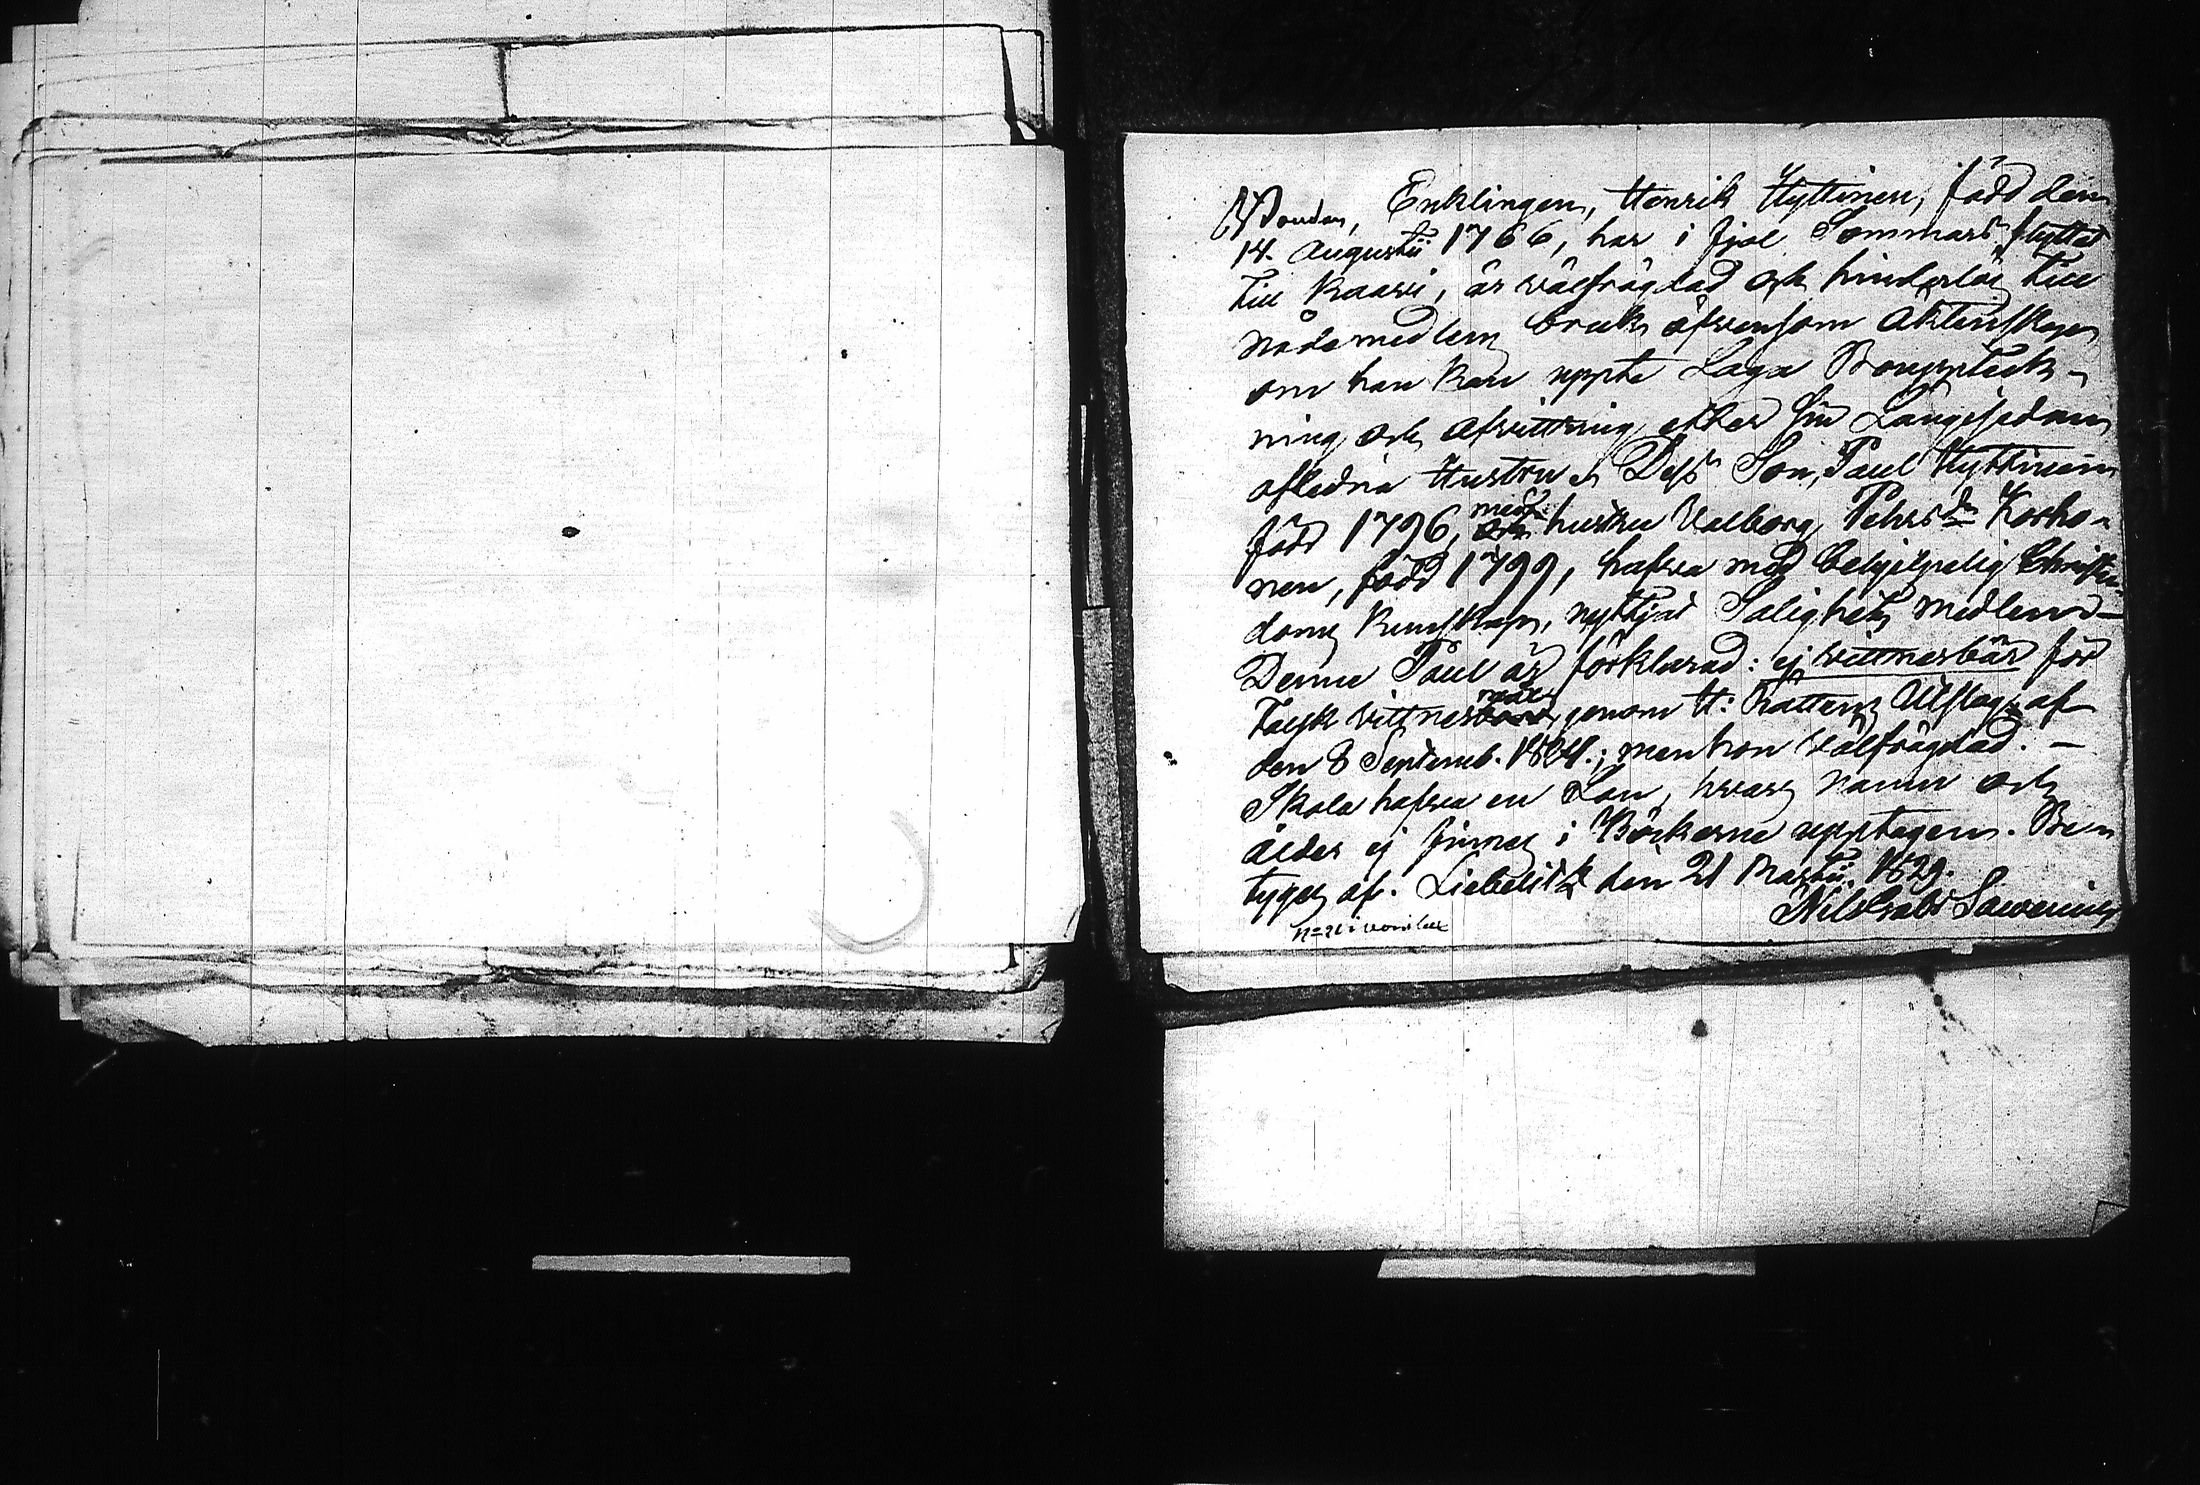 Bonden, Enklingen, Henrik Hyttinen, född den
14. Augustii 1766, har i fjol Sommars flyttat
till Kaavi, är välfrägdad och hinderlös till
nådemedlens bruk äfvensom Äktenskapen
om han kan uppte Laga Bouppteck-
ning och Afvittring efter sin Längesedan
afledna Hustru. Dess Son, Paul Hyttinen
född 1796, med hustru Valborg Pehrsdr Korho-
nen, född 1799, hafva med behjelpelig Christen-
doms kunskap, nyttjat Salighets medlen. -
Denne Paul är förklarad: ej vittnesbär för
Falsk Vittnesmål genom H: Rättens Utslag af
den 8 Septemb. 1824.; men hon välfrägdad. -
Skola hafva en Son, hvars namn och
ålder ej finnes i Böckerne upptagen. Be-
tygas af. Liebelitz den 21 Martii 1829.
Nils Gabr Sawenius